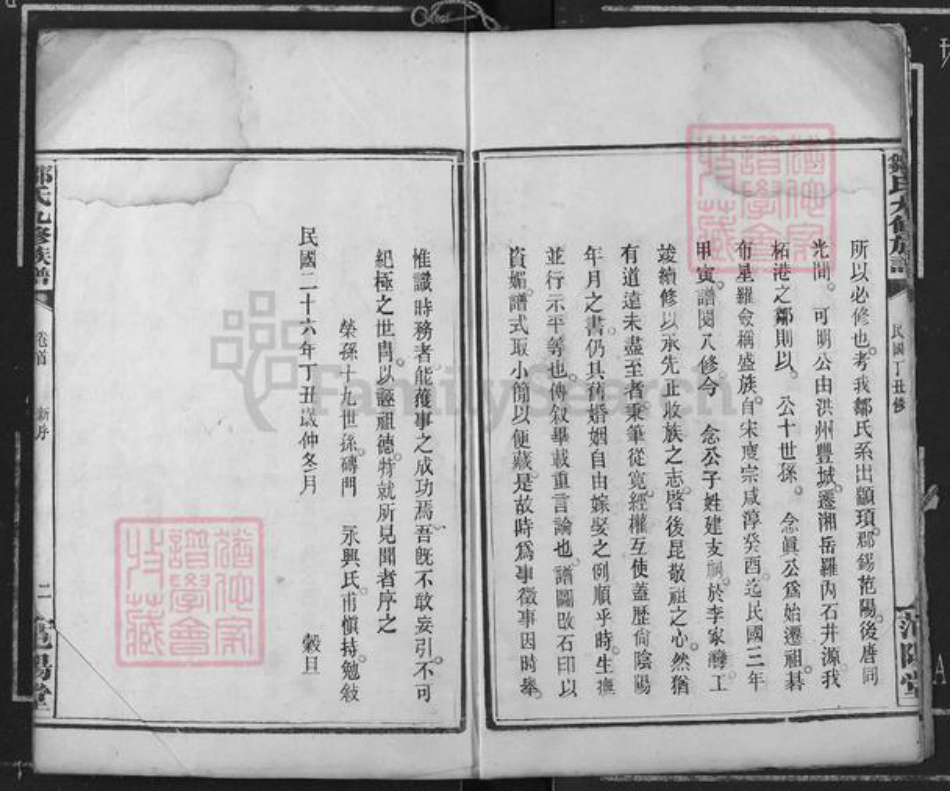 民國丁丑修
所以必修也。考我鄒氏系出顓頊。郡錫范陽。後唐同
光間。可明公由洪州豐城。遷湘岳羅內石井源。我
柘港之鄒則以。公十世孫。念眞公爲始遷祖。碁
布星羅僉稱盛族。自宋度宗咸淳癸酉。迄民國三年
甲寅。譜閱八修。今 念公子姓建支祠於李家灣。工
竣續修以承先止收族之志。啓後昆敬祖之心。然猶
有道遠未盡至者。秉筆從寬。經權互使。蓋歷尙陰陽
年月之書。仍其舊婚姻自由嫁娶之例順乎時。生
並行示平等也。傳叙畢載重言論也。譜圖改石印以
資媚。譜式取小簡以便藏。是故時爲事徵。事因時舉。
惟識時務者能蒦事之成功焉。吾旣不敢妄引。不可
紀極之世冑。以誣祖德。特就所見聞者序之
榮孫十九世孫磚門 永興氏。甫愼持勉敍
民國二十六年丁丑歲仲冬月 穀旦
鄒氏九修族譜
卷首 新序
二
范陽堂
FamilySearch